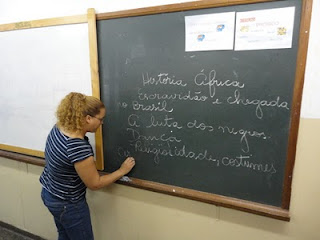 História África
Escravidão e chegada
no Brasil
A luta dos negros
Dança
Religiosidade, costumes